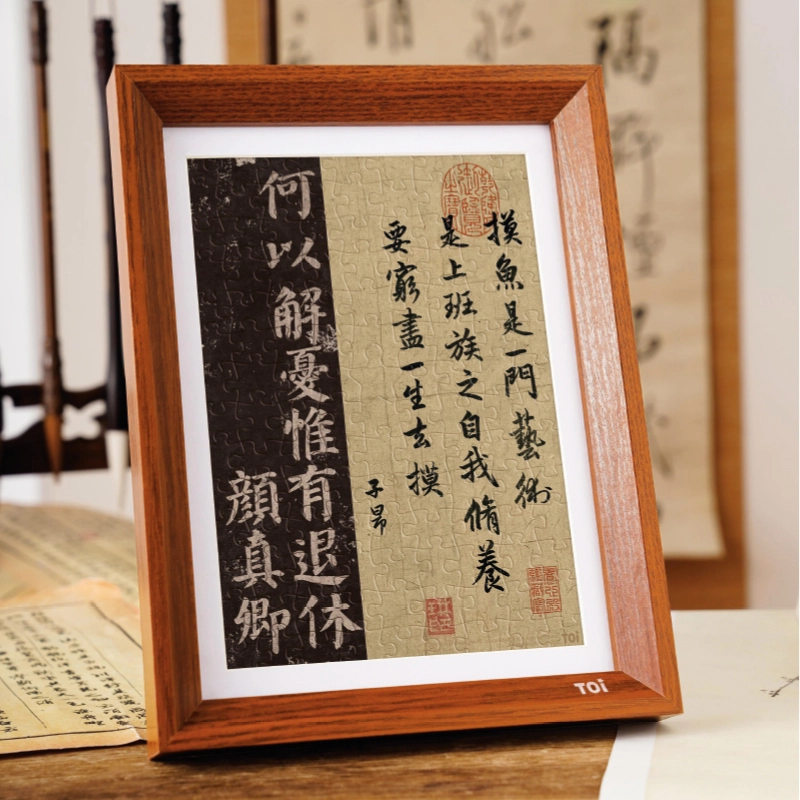 摸魚是一門藝術
是上班族之自我脩養
要窮盡一生去摸
子昂
何以解憂惟有退休
顏真卿
Toi
TOi